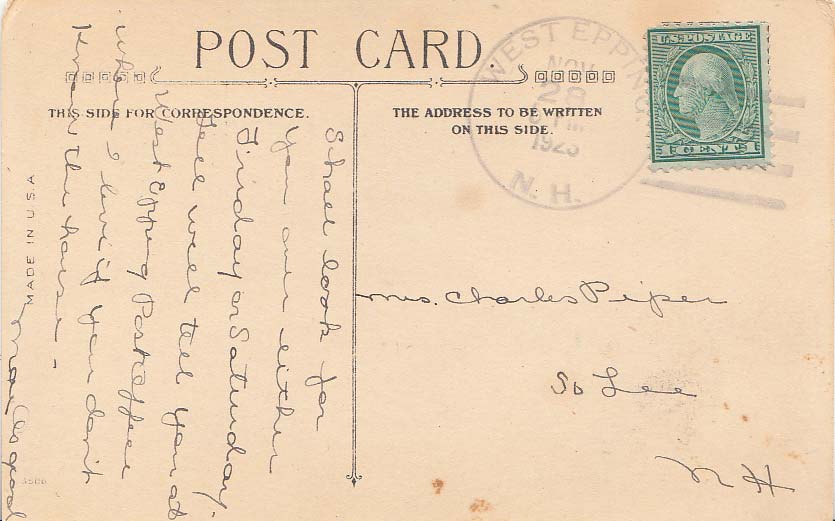 POST CARD.
THIS SIDE FOR CORRESPONDENCE.
THE ADDRESS TO BE WRITTEN
ON THIS SIDE.
WEST EPPING
NOV
28
1925
N. H.
U.S. POSTAGE
1 CENT 1
MADE IN U.S.A
Shall look for
you over either
Friday or Saturday.
will tell you at
West Epping Post Office
where I live if you don't
know the house -
Osgood
Mrs. Charles Piper
So Lee
N H